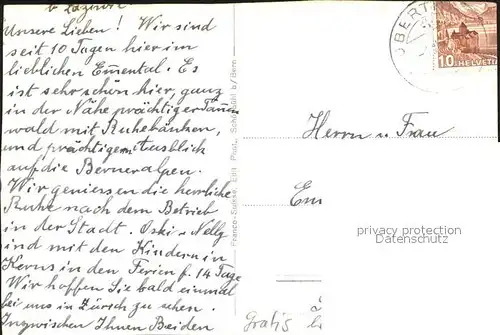 b. Lützenw
Unsere Lieben! Wir sind
seit 10 Tagen hier im
lieblichen Em̄ental. Es
ist sehr schön hier, ganz
in der Nähe prächtiger Tann
wald mit Ruhebänken,
und prächtigem Ausblick
auf die Berneralpen.
Wir geniessen die herrliche
Ruhe nach dem Betrieb
in der Stadt. Oski u. Nelly
sind mit den Kindern in
Kerns in den Ferien f. 14 Tage
Wir hoffen Sie bald einmal
bei uns in Zürich zu sehen.
Inzwischen Ihnen Beiden
Franco-Suisse, Edit. Phot., Schönbühl b/Bern
OBERT
10 HELVETIA
Herrn u. Frau
Em
privacy protection
Datenschutz
Gratis